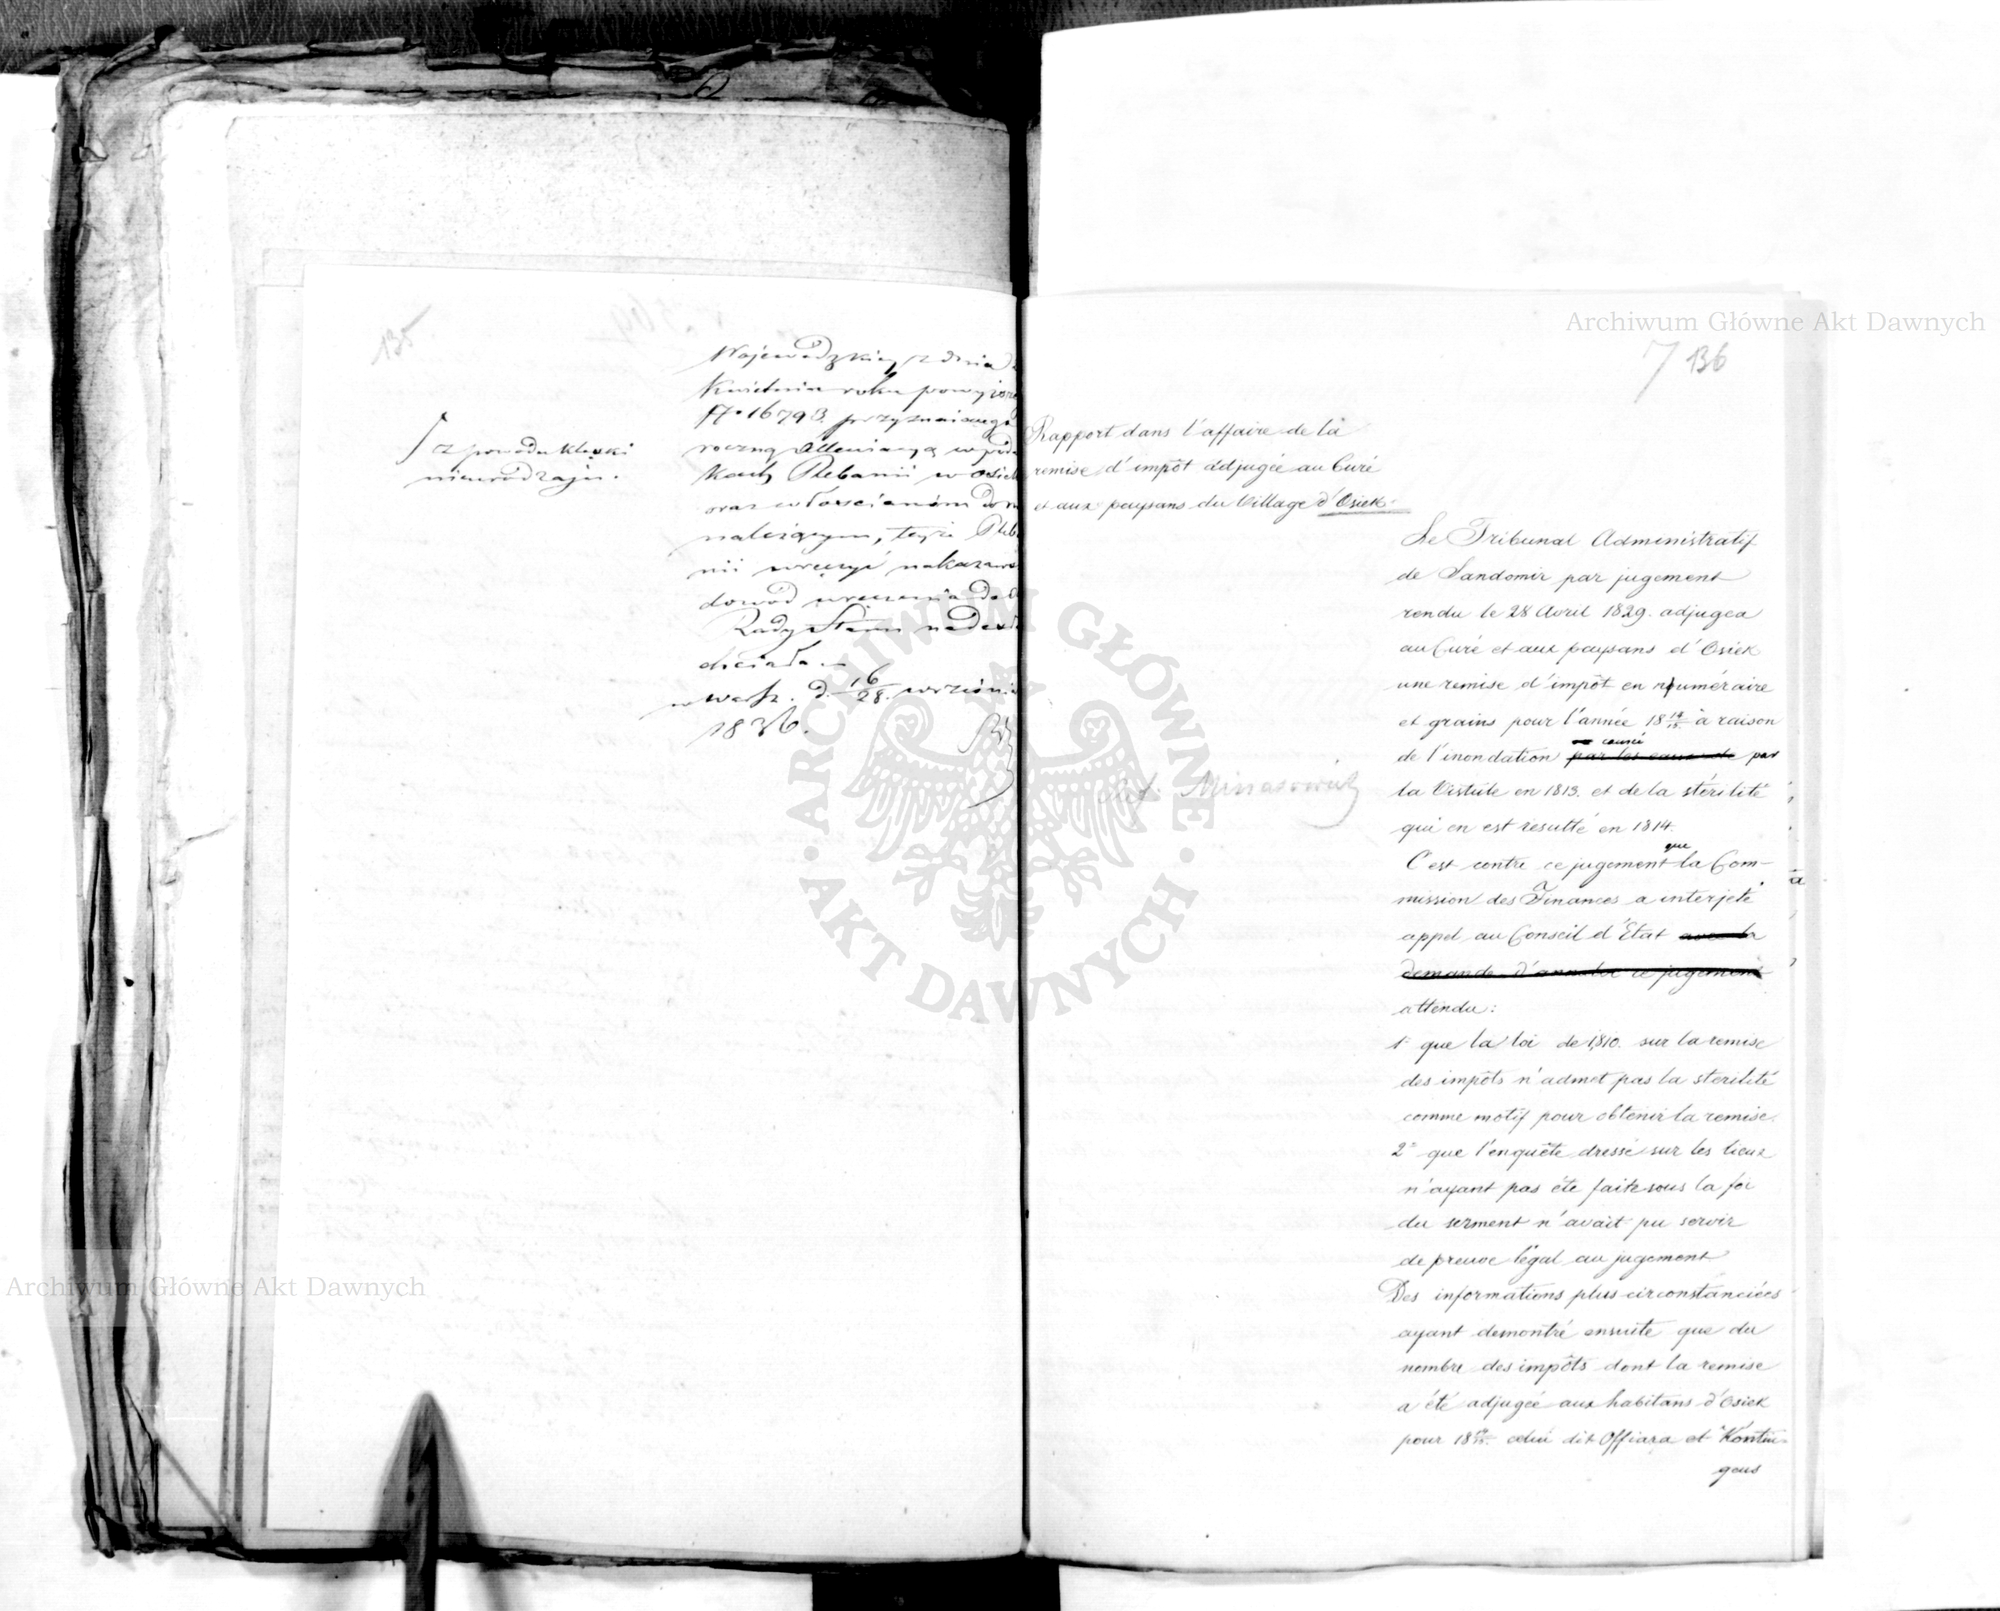 135
Wojewódzkiey z dnia
Kwietnia roku powyższ
N° 16793. przyznaiącego
ʃ z powodu klęski
nieurodzaju.
roczną allewiacyą w podat
kach Plebanii w Osiek
oraz włościanom do n
należącym, teyże Pleba
nii wręczyć nakazawsz
dowód wręczenia do
Rady Stanu nadesłać
chciała.
w Warsz. d. 16/28. września
1836.
7 136
Rapport dans l'affaire de la
remise d'impôt adjugée au Curé
et aux paysans du Village d'Osiek
Le Tribunal Administratif
de Sandomir par jugement
rendu le 28 Avril 1829. adjugea
au Curé et aux paysans d'Osiek
une remise d'impôt en nouméraire
et grains pour l'année 18 14/15. à raison
causée
de l'inondation par les eaux de par
la Vistule en 1813. et de la stérilité
qui en est resulté en 1814.
Ref. Minasowicz
que
C'est contre ce jugement la Com-
mission des Finances a interjeté
appel au Conseil d'Etat avec la
demande d'annuler ce jugement
attendu:
1° que la loi de 1810. sur la remise
des impôts n'admet pas la sterilité
comme motif pour obtenir la remise.
2° que l'enquête dressé sur les lieux
n'ayant pas été faite sous la foi
du serment n'avait pu servir
de preuve légal au jugement
Des informations plus circonstanciées
ayant demontré ensuite que du
nombre des impôts dont la remise
a été adjugée aux habitans d'Osiek
pour 18 14/15. celui dit Offiara et Kontin-
gens
Archiwum Główne Akt Dawnych
Archiwum Główne Akt Dawnych
ARCHIWUM GŁÓWNE · AKT DAWNYCH ·